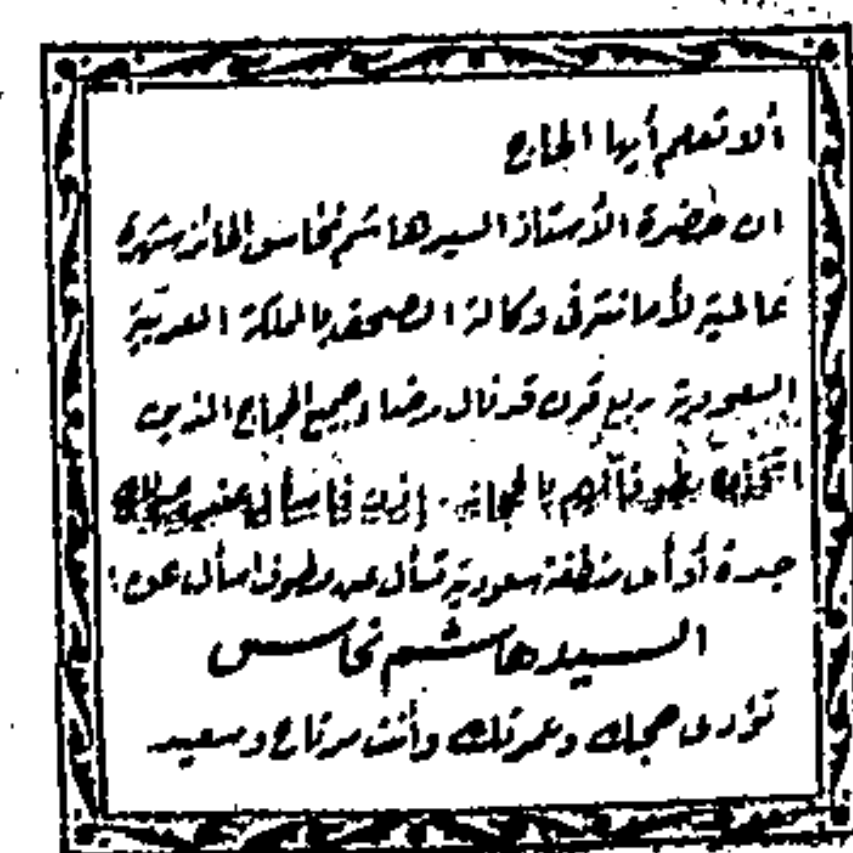 ألا تعلم أيها الحاج
ان حضرة الأستاذ السيد هاشم نحاس الحائز شهرة
عالمية لأمانته في وكالة الصحف بالمملكة العربية
السعودية ربع قرن قد نال رضا وجميع الحجاج الذين
اتخذوه مطوفا لهم بالحجاز. إذن فاسأل عنه
جدة أو أى منطقة سعودية تسأل عن مطوف اسأل عن:
الســيد هاشــم نحاس
تؤدى حجك وعمرتك وأنت مرتاح وسعيد